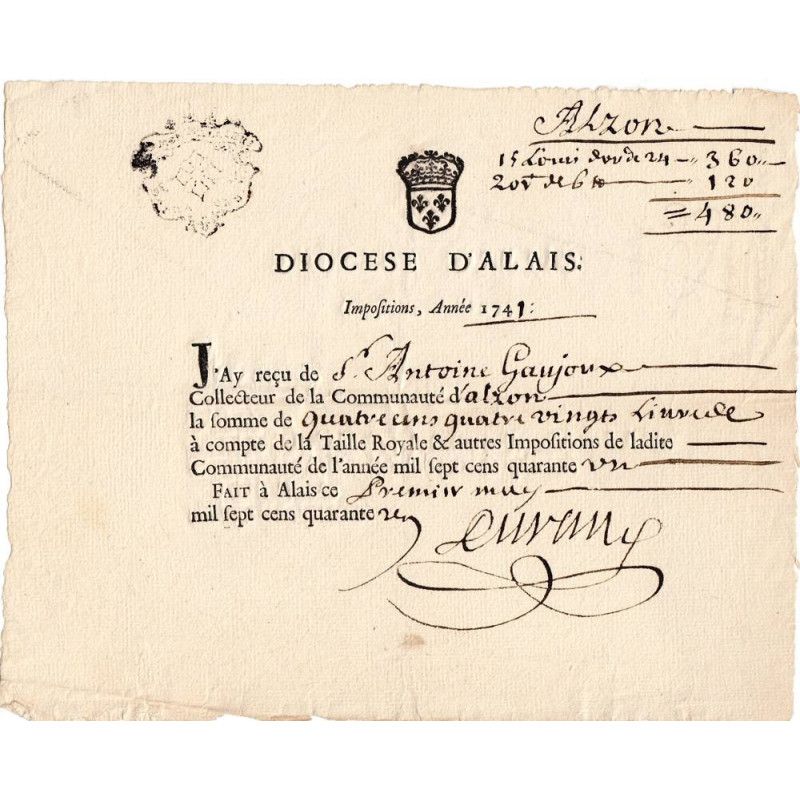 Alzon
15 Louis dor de 24 - 360,,
20 de 6 120
= 480,,
DIOCESE D'ALAIS.
Impositions, Année 1741:
J'Ay reçu de Sr. Antoine Gaujoux
Collecteur de la Communauté d'alzon
la somme de quatre cens quatre vingts Livres
à compte de la Taille Royale & autres Impositions de ladite
Communauté de l'année mil sept cens quarante un
FAIT à Alais ce Premier may
mil sept cens quarante